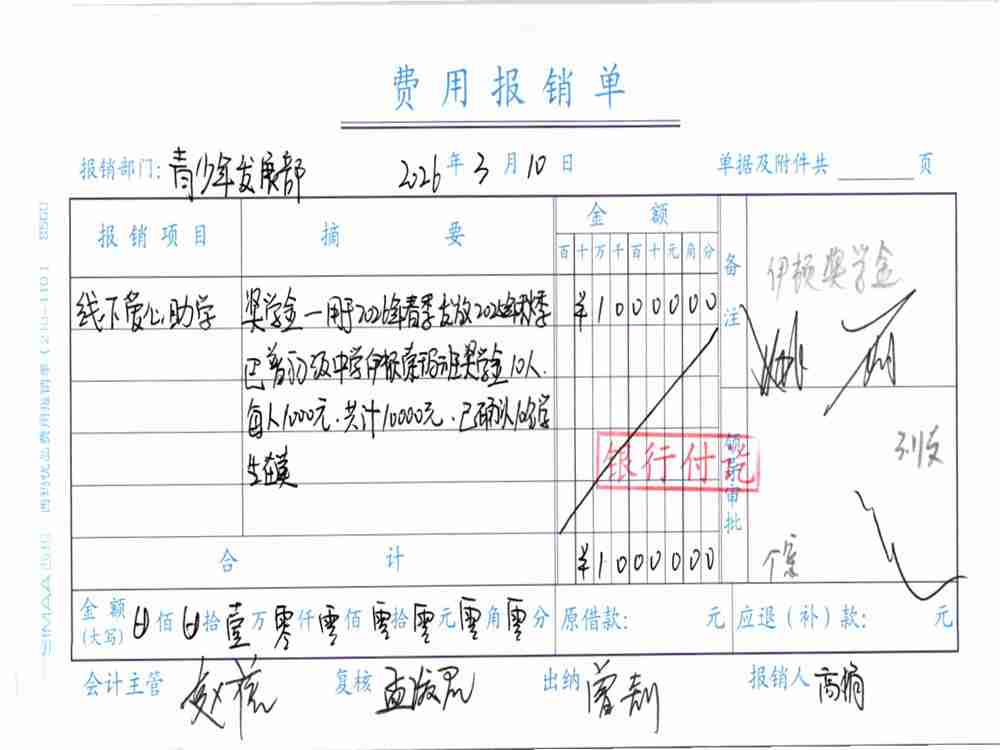 费用报销单
报销部门：青少年发展部 2026年3月10日 单据及附件共 页
报销项目 摘要 金额 备注
百十万千百十元角分
伊顿奖学金
线下爱心助学 奖学金—用于2026年春季发放2025年秋季 ¥1000000
巴普初级中学伊顿 班奖学金10人.
每人1000元.共计10000元.已确认10名学
生在美
银行付讫
领导审批
列支
个案
合计 ¥1000000
金额(大写) 佰 拾壹万零仟零佰零拾零元零角零分 原借款： 元 应退（补）款： 元
会计主管 复核 出纳 报销人 高娟
SIMAA